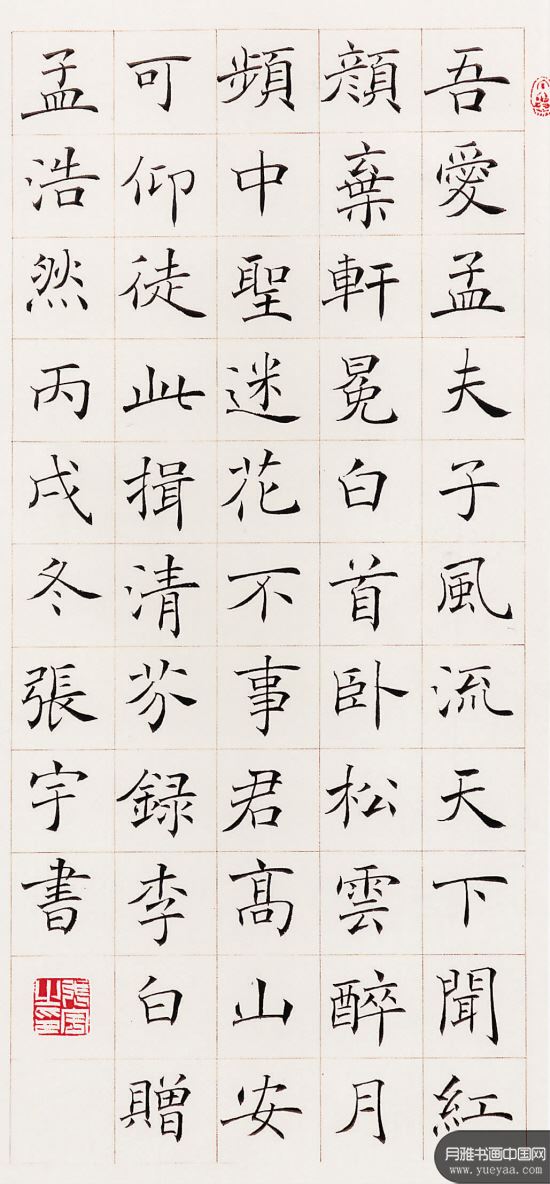 吾愛孟夫子風流天下聞紅
顏棄軒冕白首卧松雲醉月
頻中聖迷花不事君髙山安
可仰徒此揖清芬録李白贈
孟浩然丙戌冬張宇書
張宇之印
月雅书画中国网
www.yueyaa.com